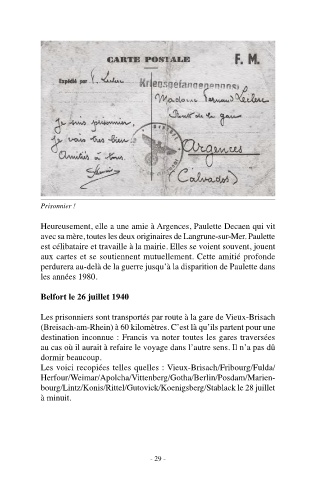 CARTE POSTALE
F. M.
Expédié par F. Leclerc
Kriegsgefangenenpost
Madame Fernand Leclerc
Pont de la gare
Argences
(Calvados)
Je suis prisonnier,
je vais très bien
Amitiés à tous.
Prisonnier !
Heureusement, elle a une amie à Argences, Paulette Decaen qui vit
avec sa mère, toutes les deux originaires de Langrune-sur-Mer. Paulette
est célibataire et travaille à la mairie. Elles se voient souvent, jouent
aux cartes et se soutiennent mutuellement. Cette amitié profonde
perdurera au-delà de la guerre jusqu'à la disparition de Paulette dans
les années 1980.
Belfort le 26 juillet 1940
Les prisonniers sont transportés par route à la gare de Vieux-Brisach
(Breisach-am-Rhein) à 60 kilomètres. C'est là qu'ils partent pour une
destination inconnue : Francis va noter toutes les gares traversées
au cas où il aurait à refaire le voyage dans l'autre sens. Il n'a pas dû
dormir beaucoup.
Les voici recopiées telles quelles : Vieux-Brisach/Fribourg/Fulda/
Herfour/Weimar/Apolcha/Vittenberg/Gotha/Berlin/Posdam/Marien-
bourg/Lintz/Konis/Rittel/Gutovick/Koenigsberg/Stablack le 28 juillet
à minuit.
- 29 -